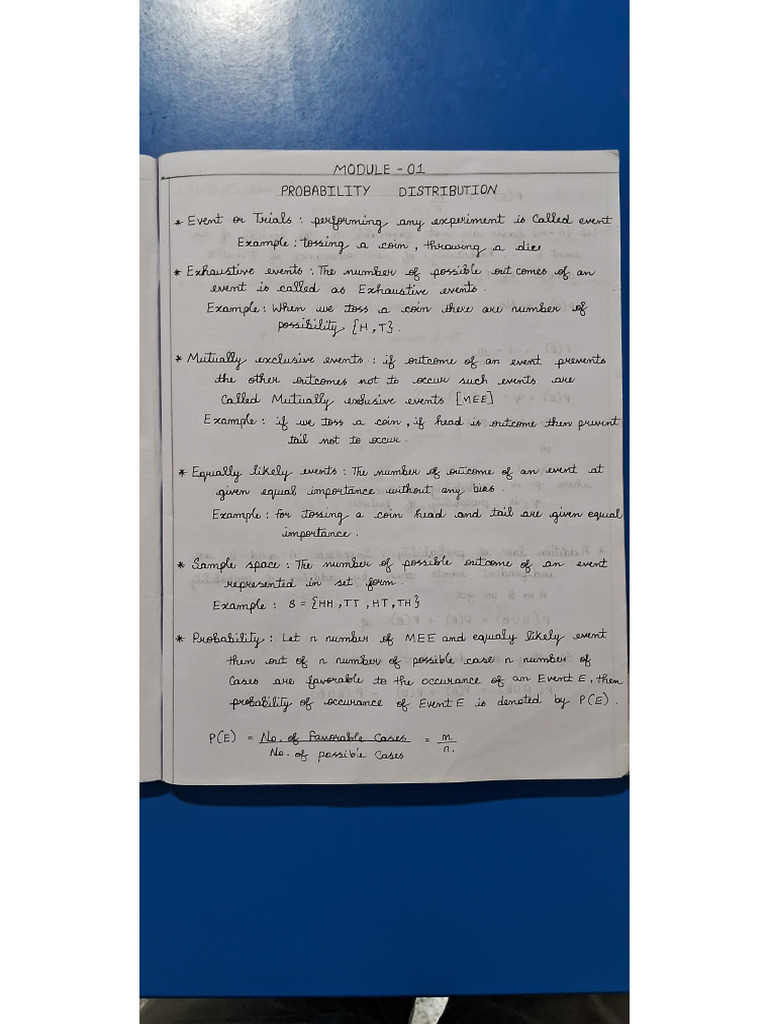 MODULE - 01
PROBABILITY DISTRIBUTION
* Event or Trials : performing any experiment is called event
Example : tossing a coin , throwing a dice
* Exhaustive events : The number of possible out comes of an
event is called as Exhaustive events.
Example : When we toss a coin there are number of
possibility {H , T} .
* Mutually exclusive events : if outcome of an event prevents
the other outcomes not to occur such events are
called Mutually exclusive events [MEE]
Example : if we toss a coin , if head is outcome then prevent
tail not to occur .
* Equally likely events : The number of outcome of an event at
given equal importance without any bias .
Example : for tossing a coin head and tail are given equal
importance .
* Sample space : The number of possible outcome of an event
represented in set form .
Example : S = {HH , TT , HT, TH}
* Probability : Let n number of MEE and equaly likely event
then out of n number of possible case n number of
cases are favorable to the occurance of an Event E , then
probability of occurance of Event E is denoted by P(E) .
P(E) = No. of Favorable Cases / No. of possible Cases = m / n.